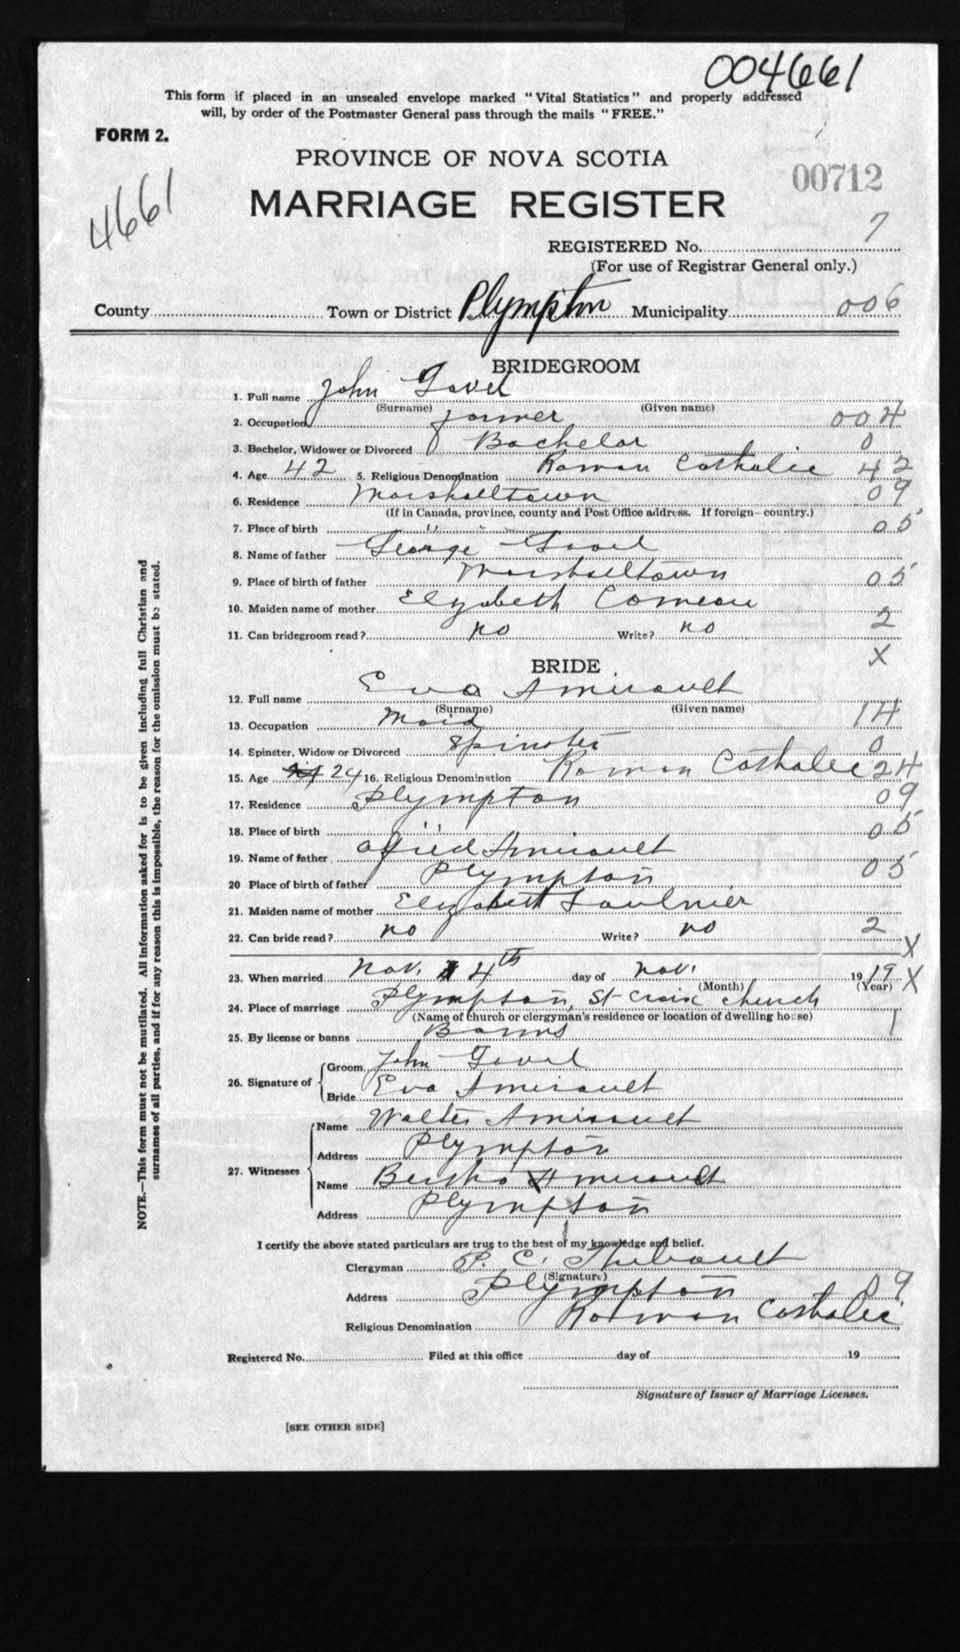 004661
This form if placed in an unsealed envelope marked "Vital Statistics" and properly addressed
will, by order of the Postmaster General pass through the mails "FREE."
FORM 2.
4661
PROVINCE OF NOVA SCOTIA
00712
MARRIAGE REGISTER
REGISTERED No. 7
(For use of Registrar General only.)
County Town or District Plympton Municipality 006
BRIDEGROOM
1. Full name John Gavel
(Surname) (Given name)
2. Occupation farmer 004
3. Bachelor, Widower or Divorced Bachelor 0
4. Age 42 5. Religious Denomination Roman Catholic 42
6. Residence Marshalltown 09
(If in Canada, province, county and Post Office address. If foreign—country.)
7. Place of birth " " 05
8. Name of father George Gavel
9. Place of birth of father Marshalltown 05
10. Maiden name of mother Elyzabeth Comeau
11. Can bridegroom read? no Write? no 2
X
BRIDE
12. Full name Eva Amirault
(Surname) (Given name)
13. Occupation Maid 14
14. Spinster, Widow or Divorced Spinster 0
15. Age 24 16. Religious Denomination Roman Catholic 24
17. Residence Plympton 09
18. Place of birth " 05
19. Name of father Alfred Amirault
20 Place of birth of father Plympton 05
21. Maiden name of mother Elyzabeth Saulnier
22. Can bride read? no Write? no 2
X
23. When married Nov. 4th day of Nov. 1919 X
(Month) (Year)
24. Place of marriage Plympton, St-Croix church
(Name of church or clergyman's residence or location of dwelling house) 1
25. By license or banns Banns
26. Signature of Groom John Gavel
Bride Eva Amirault
27. Witnesses Name Walter Amirault
Address Plympton
Name Bertha Amirault
Address Plympton
I certify the above stated particulars are true to the best of my knowledge and belief.
Clergyman P. C. Thibault
(Signature)
Address Plympton 09
Religious Denomination Roman Catholic
Registered No. Filed at this office day of 19
Signature of Issuer of Marriage Licenses.
[SEE OTHER SIDE]
NOTE.—This form must not be mutilated. All information asked for is to be given including full Christian and
surnames of all parties, and if for any reason this is impossible, the reason for the omission must be stated.